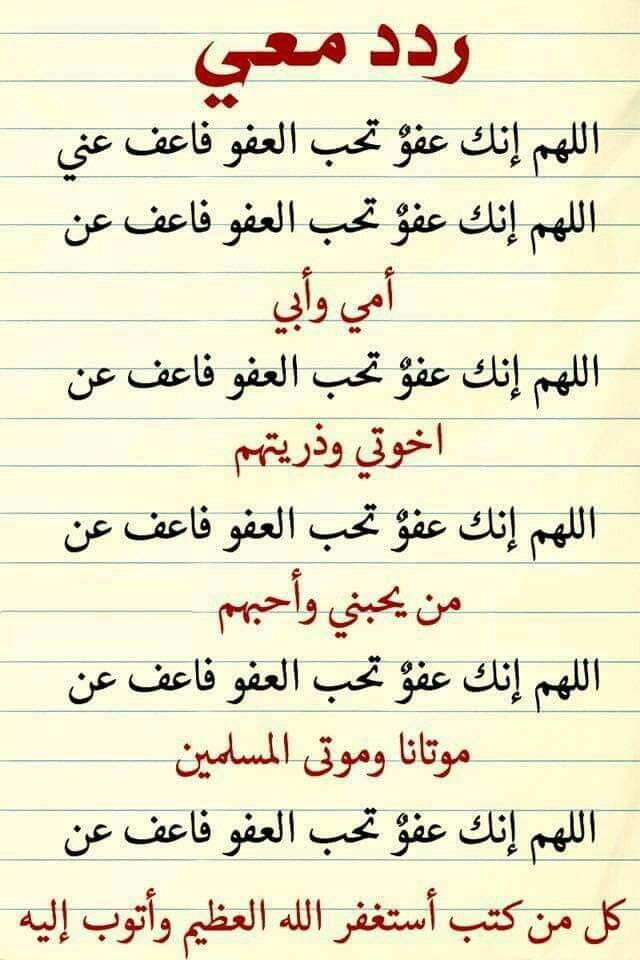 ردد معي
اللهم إنك عفوٌ تحب العفو فاعف عني
اللهم إنك عفوٌ تحب العفو فاعف عن
أمي وأبي
اللهم إنك عفوٌ تحب العفو فاعف عن
اخوتي وذريتهم
اللهم إنك عفوٌ تحب العفو فاعف عن
من يحبني وأحبهم
اللهم إنك عفوٌ تحب العفو فاعف عن
موتانا وموتى المسلمين
اللهم إنك عفوٌ تحب العفو فاعف عن
كل من كتب أستغفر الله العظيم وأتوب إليه